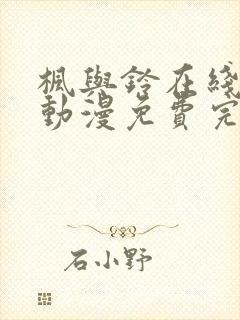 楓與鈴在綫
動漫免費完
石小野